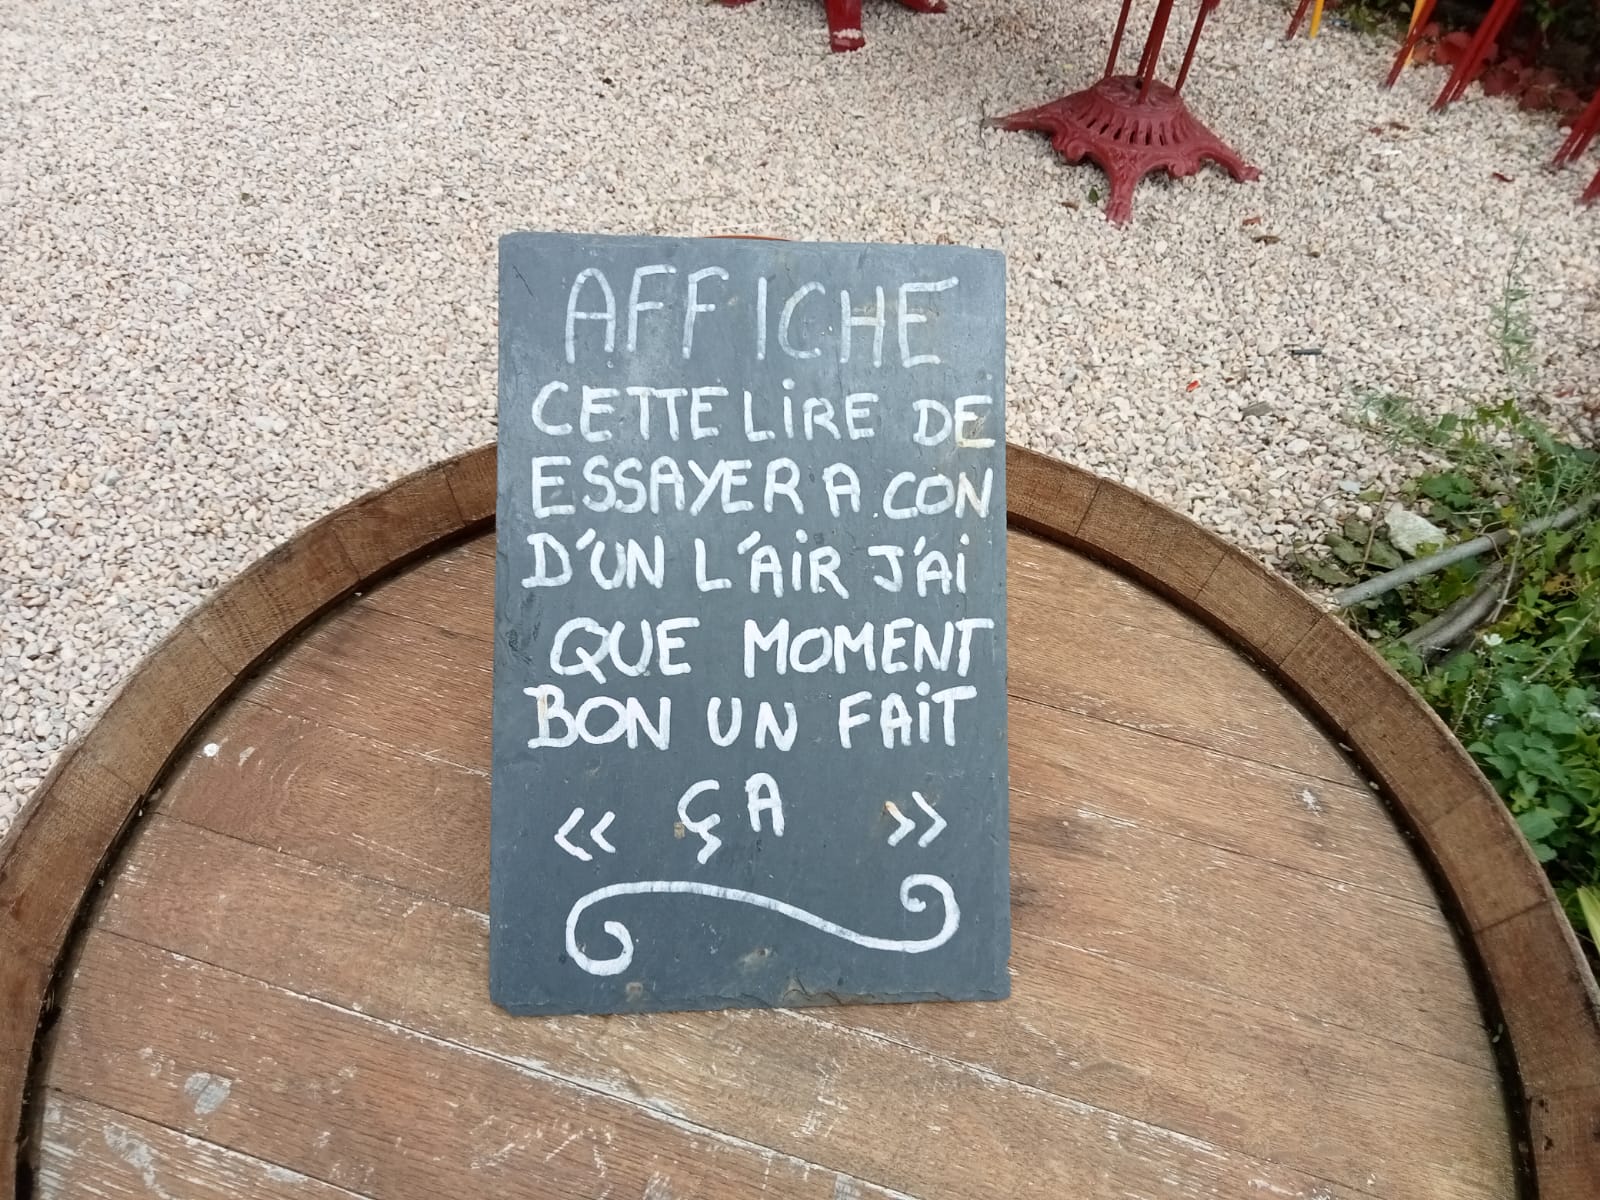 AFFICHE
CETTE LiRE DE
ESSAYER A CON
D'UN L'AiR J'Ai
QUE MOMENT
BON UN FAiT
« ÇA »